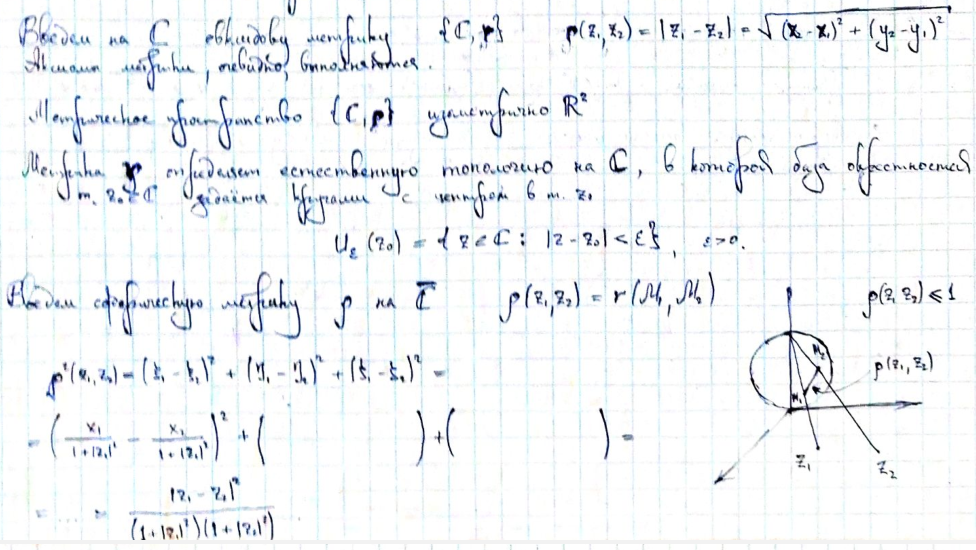 Введем на ℂ евклидову метрику {ℂ, ρ} ρ(z₁, z₂) = |z₁ - z₂| = √((x₂ - x₁)² + (y₂ - y₁)²)
Аксиомы метрики, очевидно, выполняются.
Метрическое пространство {ℂ, ρ} изометрично ℝ²
Метрика ρ определяет естественную топологию на ℂ, в которой база окрестностей
т. z₀ ∈ ℂ задаётся кругами с центром в т. z₀
U_ε (z₀) = { z ∈ ℂ : |z - z₀| < ε }, ε > 0.
Введем сферическую метрику ρ на ℂ̅ ρ(z₁, z₂) = r(M₁, M₂)
ρ(z, z₂) ≤ 1
ρ²(z₁, z₂) = (ξ₁ - ξ₂)² + (η₁ - η₂)² + (ζ₁ - ζ₂)² =
M₂
ρ(z₁, z₂)
M₁
= (x₁/(1+|z₁|²) - x₂/(1+|z₂|²))² + ( ) + ( ) =
z₁ z₂
= .... = |z₁ - z₂|²/((1+|z₁|²)(1+|z₂|²))